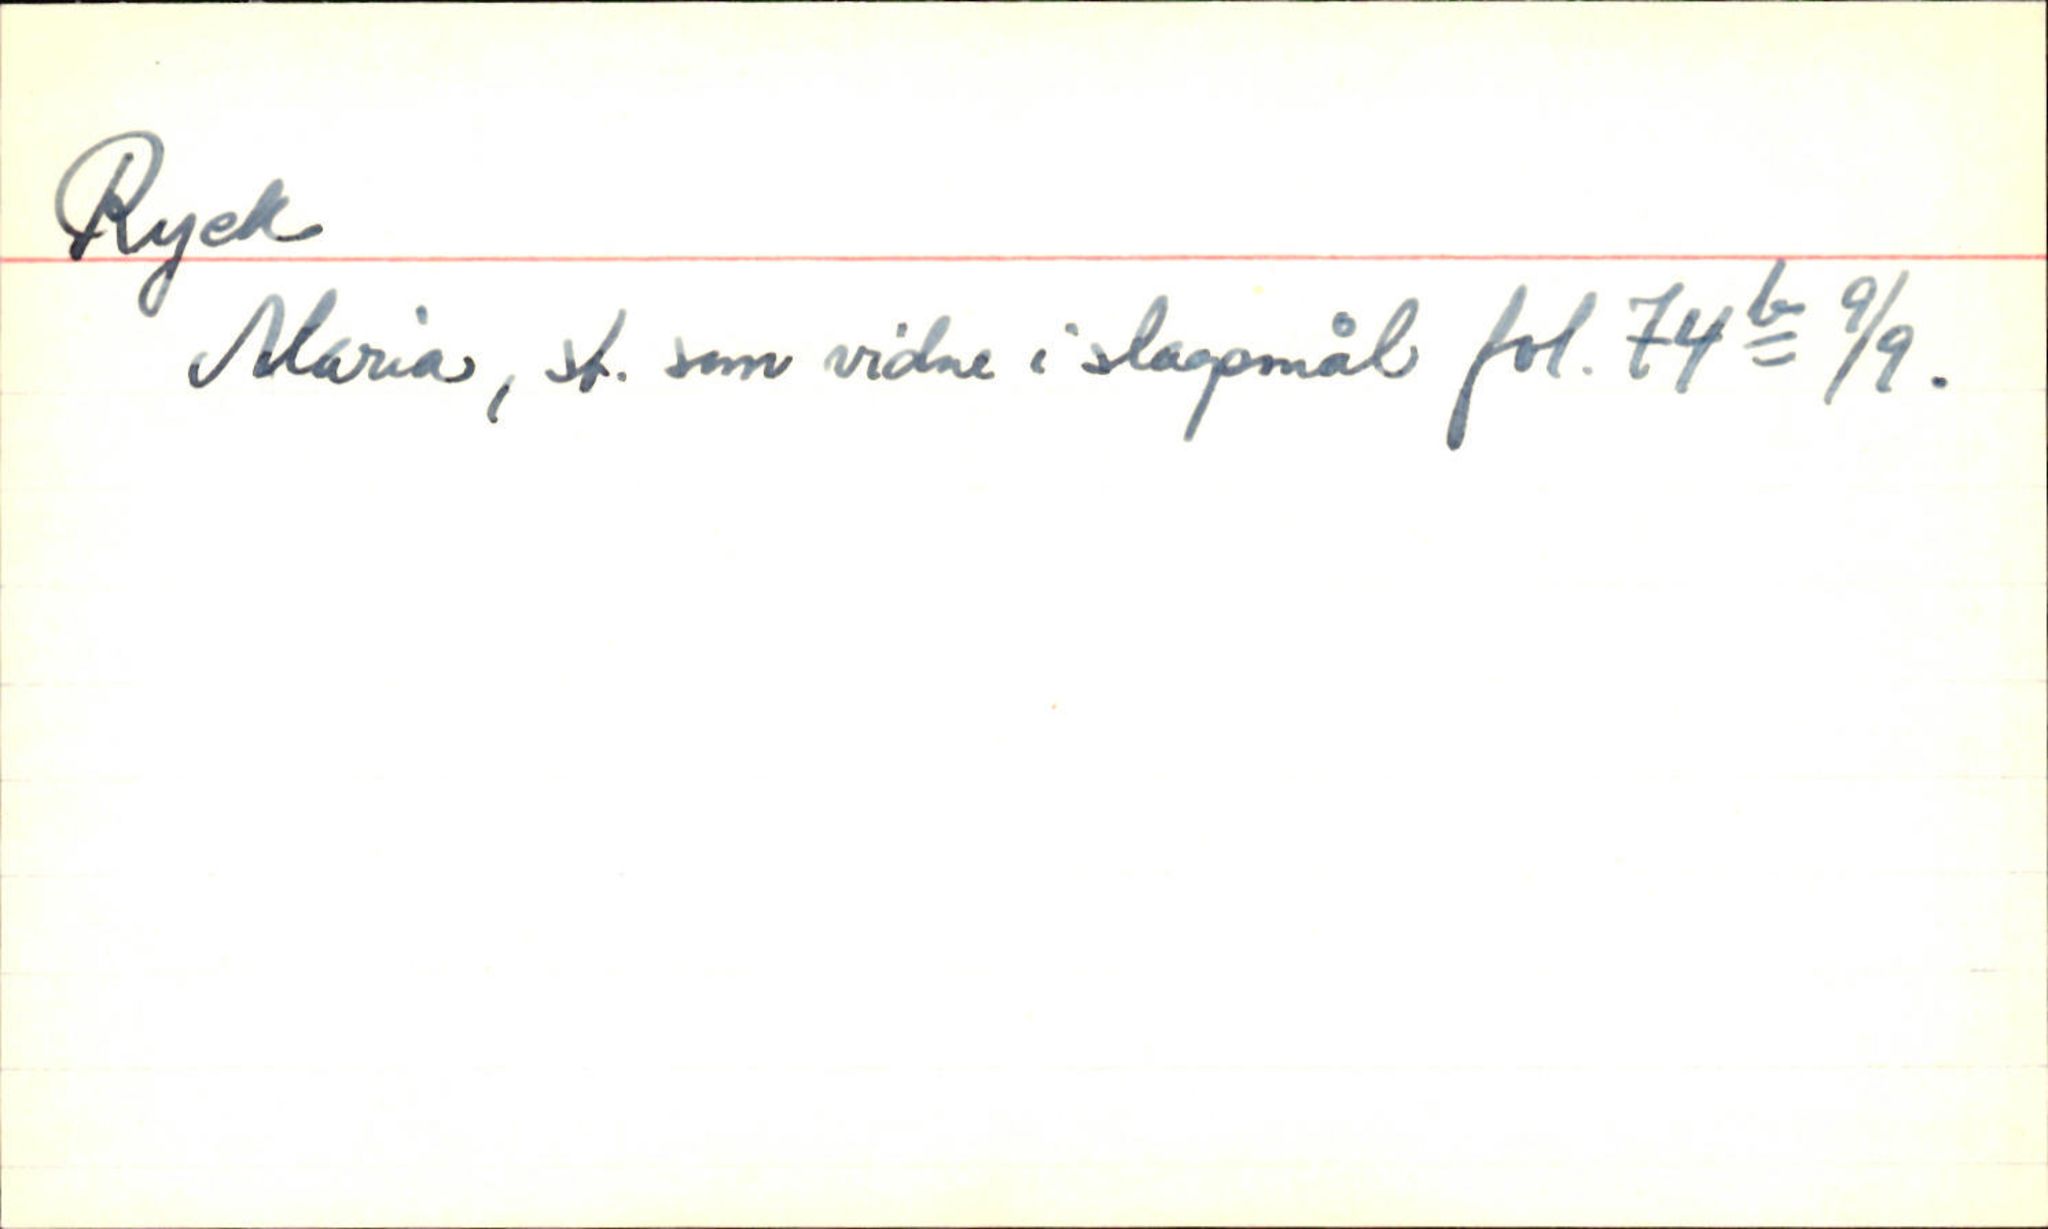 Ryck
Maria, st. som vidne i slagsmål fol. 74b 9/9.